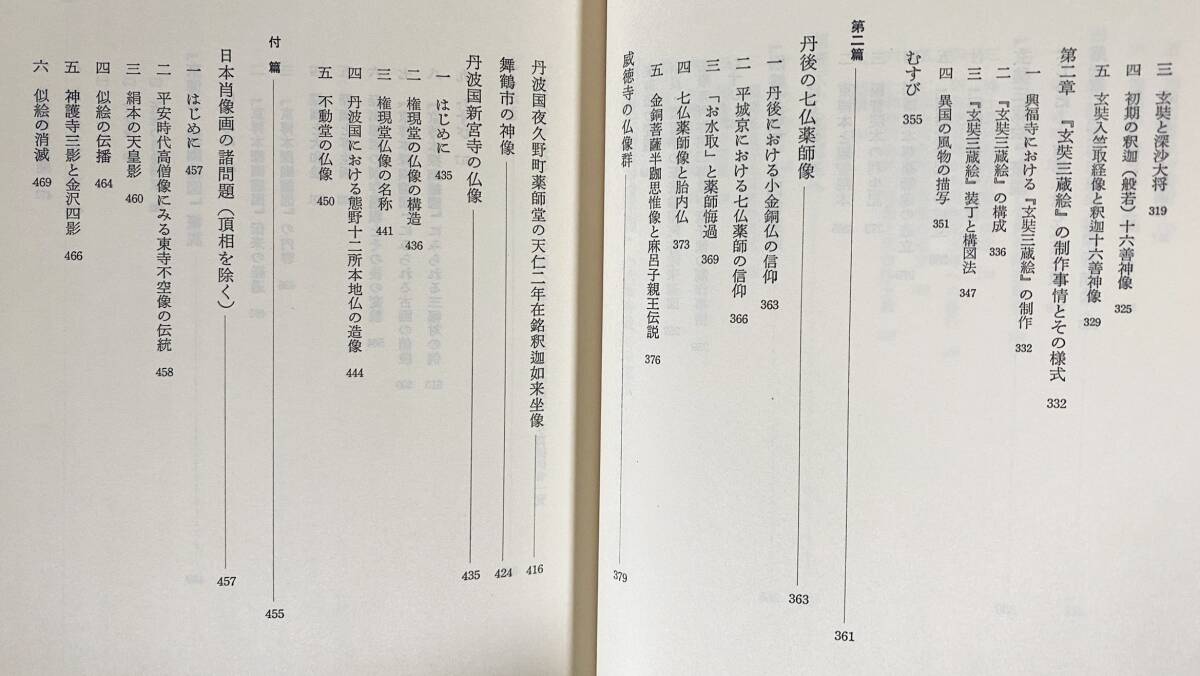 三 玄奘と深沙大将 319
四 初期の釈迦(般若)十六善神像 325
五 玄奘入竺取経像と釈迦十六善神像 329
第二章 『玄奘三蔵絵』の制作事情とその様式 332
一 興福寺における『玄奘三蔵絵』の制作 332
二 『玄奘三蔵絵』の構成 336
三 『玄奘三蔵絵』装丁と構図法 347
四 異国の風物の描写 351
むすび 355
第二篇 361
丹後の七仏薬師像 363
一 丹後における小金銅仏の信仰 363
二 平城京における七仏薬師の信仰 366
三 「お水取」と薬師悔過 369
四 七仏薬師像と胎内仏 373
五 金銅菩薩半跏思惟像と麻呂子親王伝説 376
威徳寺の仏像群 379
丹波国夜久野町薬師堂の天仁二年在銘釈迦如来坐像 416
舞鶴市の神像 424
丹波国新宮寺の仏像 435
一 はじめに 435
二 権現堂の仏像の構造 436
三 権現堂仏像の名称 441
四 丹波国における熊野十二所本地仏の造像 444
五 不動堂の仏像 450
付篇 455
日本肖像画の諸問題(頂相を除く) 457
一 はじめに 457
二 平安時代高僧像にみる東寺不空像の伝統 458
三 絹本の天皇影 460
四 似絵の伝播 464
五 神護寺三影と金沢四影 466
六 似絵の消滅 469